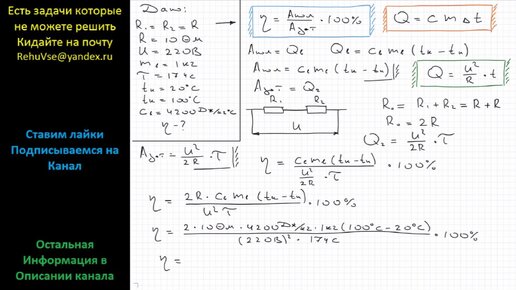 Есть задачи которые
не можете решить
Кидайте на почту
RehuVse@yandex.ru
Ставим лайки
Подписываемся на
Канал
Остальная
Информация в
Описании канала
Дано:
R₁ = R₂ = R
R = 10 Ом
U = 220В
mв = 1кг
τ = 174с
tн = 20°С
tк = 100°С
cв = 4200Дж/кг°С
η - ?
η = Aпол/Aзат · 100%
Q = c m Δt
Aпол = Qв Qв = cв mв (tк - tн)
Aпол = cв mв (tк - tн)
Q = U²/R · t
Aзат = Q₂
R₁ R₂
U
R₀ = R₁ + R₂ = R + R
R₀ = 2R
Q₂ = U²/2R · τ
Aзат = U²/2R · τ
η = cв mв (tк - tн)/(U²/2R · τ) · 100%
η = 2R · cв mв (tк - tн)/U² τ · 100%
η = 2 · 10 Ом · 4200 Дж/кг · 1кг (100°С - 20°С)/(220В)² · 174с · 100%
η =